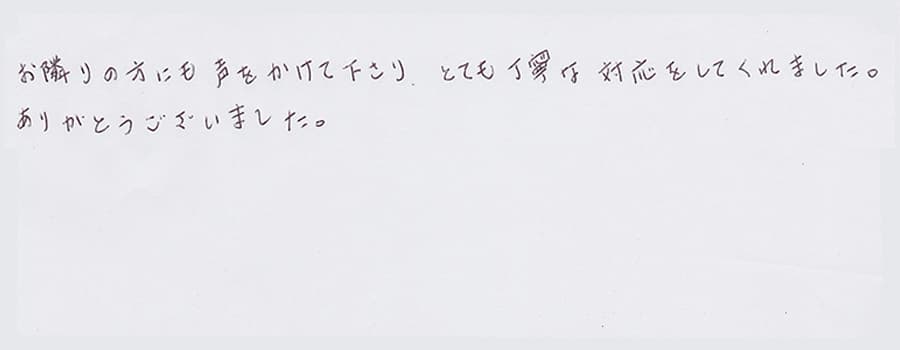 お隣りの方にも声をかけて下さり、とても丁寧な対応をしてくれました。
ありがとうございました。